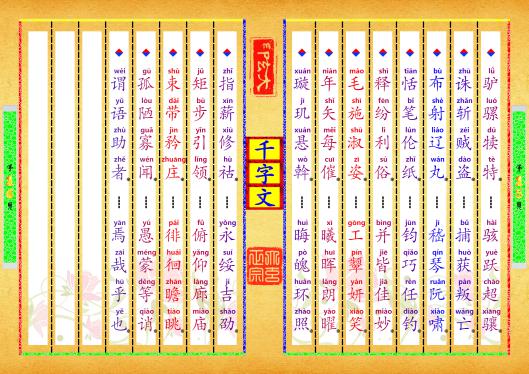 千字文
lǘ luó dú tè hài yuè chāo xiāng
驴骡犊特……骇跃超骧
zhū zhǎn zéi dào bǔ huò pàn wáng
诛斩贼盗……捕获叛亡
bù shè liáo wán jī qín ruǎn xiào
布射辽丸……嵇琴阮啸
tián bǐ lún zhǐ jūn qiǎo rén diào
恬笔伦纸……钧巧任钓
shì fēn lì sú bìng jiē jiā miào
释纷利俗……并皆佳妙
máo shī shū zī gōng pín yán xiào
毛施淑姿……工颦妍笑
nián shǐ měi cuī xī huī lǎng yào
年矢每催……曦晖朗曜
xuán jī xuán wò huì pò huán zhào
璇玑悬斡……晦魄环照
zhǐ xīn xiū hù yǒng suí jí shào
指薪修祜……永绥吉劭
jǔ bù yǐn lǐng fǔ yǎng láng miào
矩步引领……俯仰廊庙
shù dài jīn zhuāng pái huái zhān tiào
束带矜庄……徘徊瞻眺
gū lòu guǎ wén yú méng děng qiào
孤陋寡闻……愚蒙等诮
wèi yǔ zhù zhě yān zāi hū yě
谓语助者……焉哉乎也